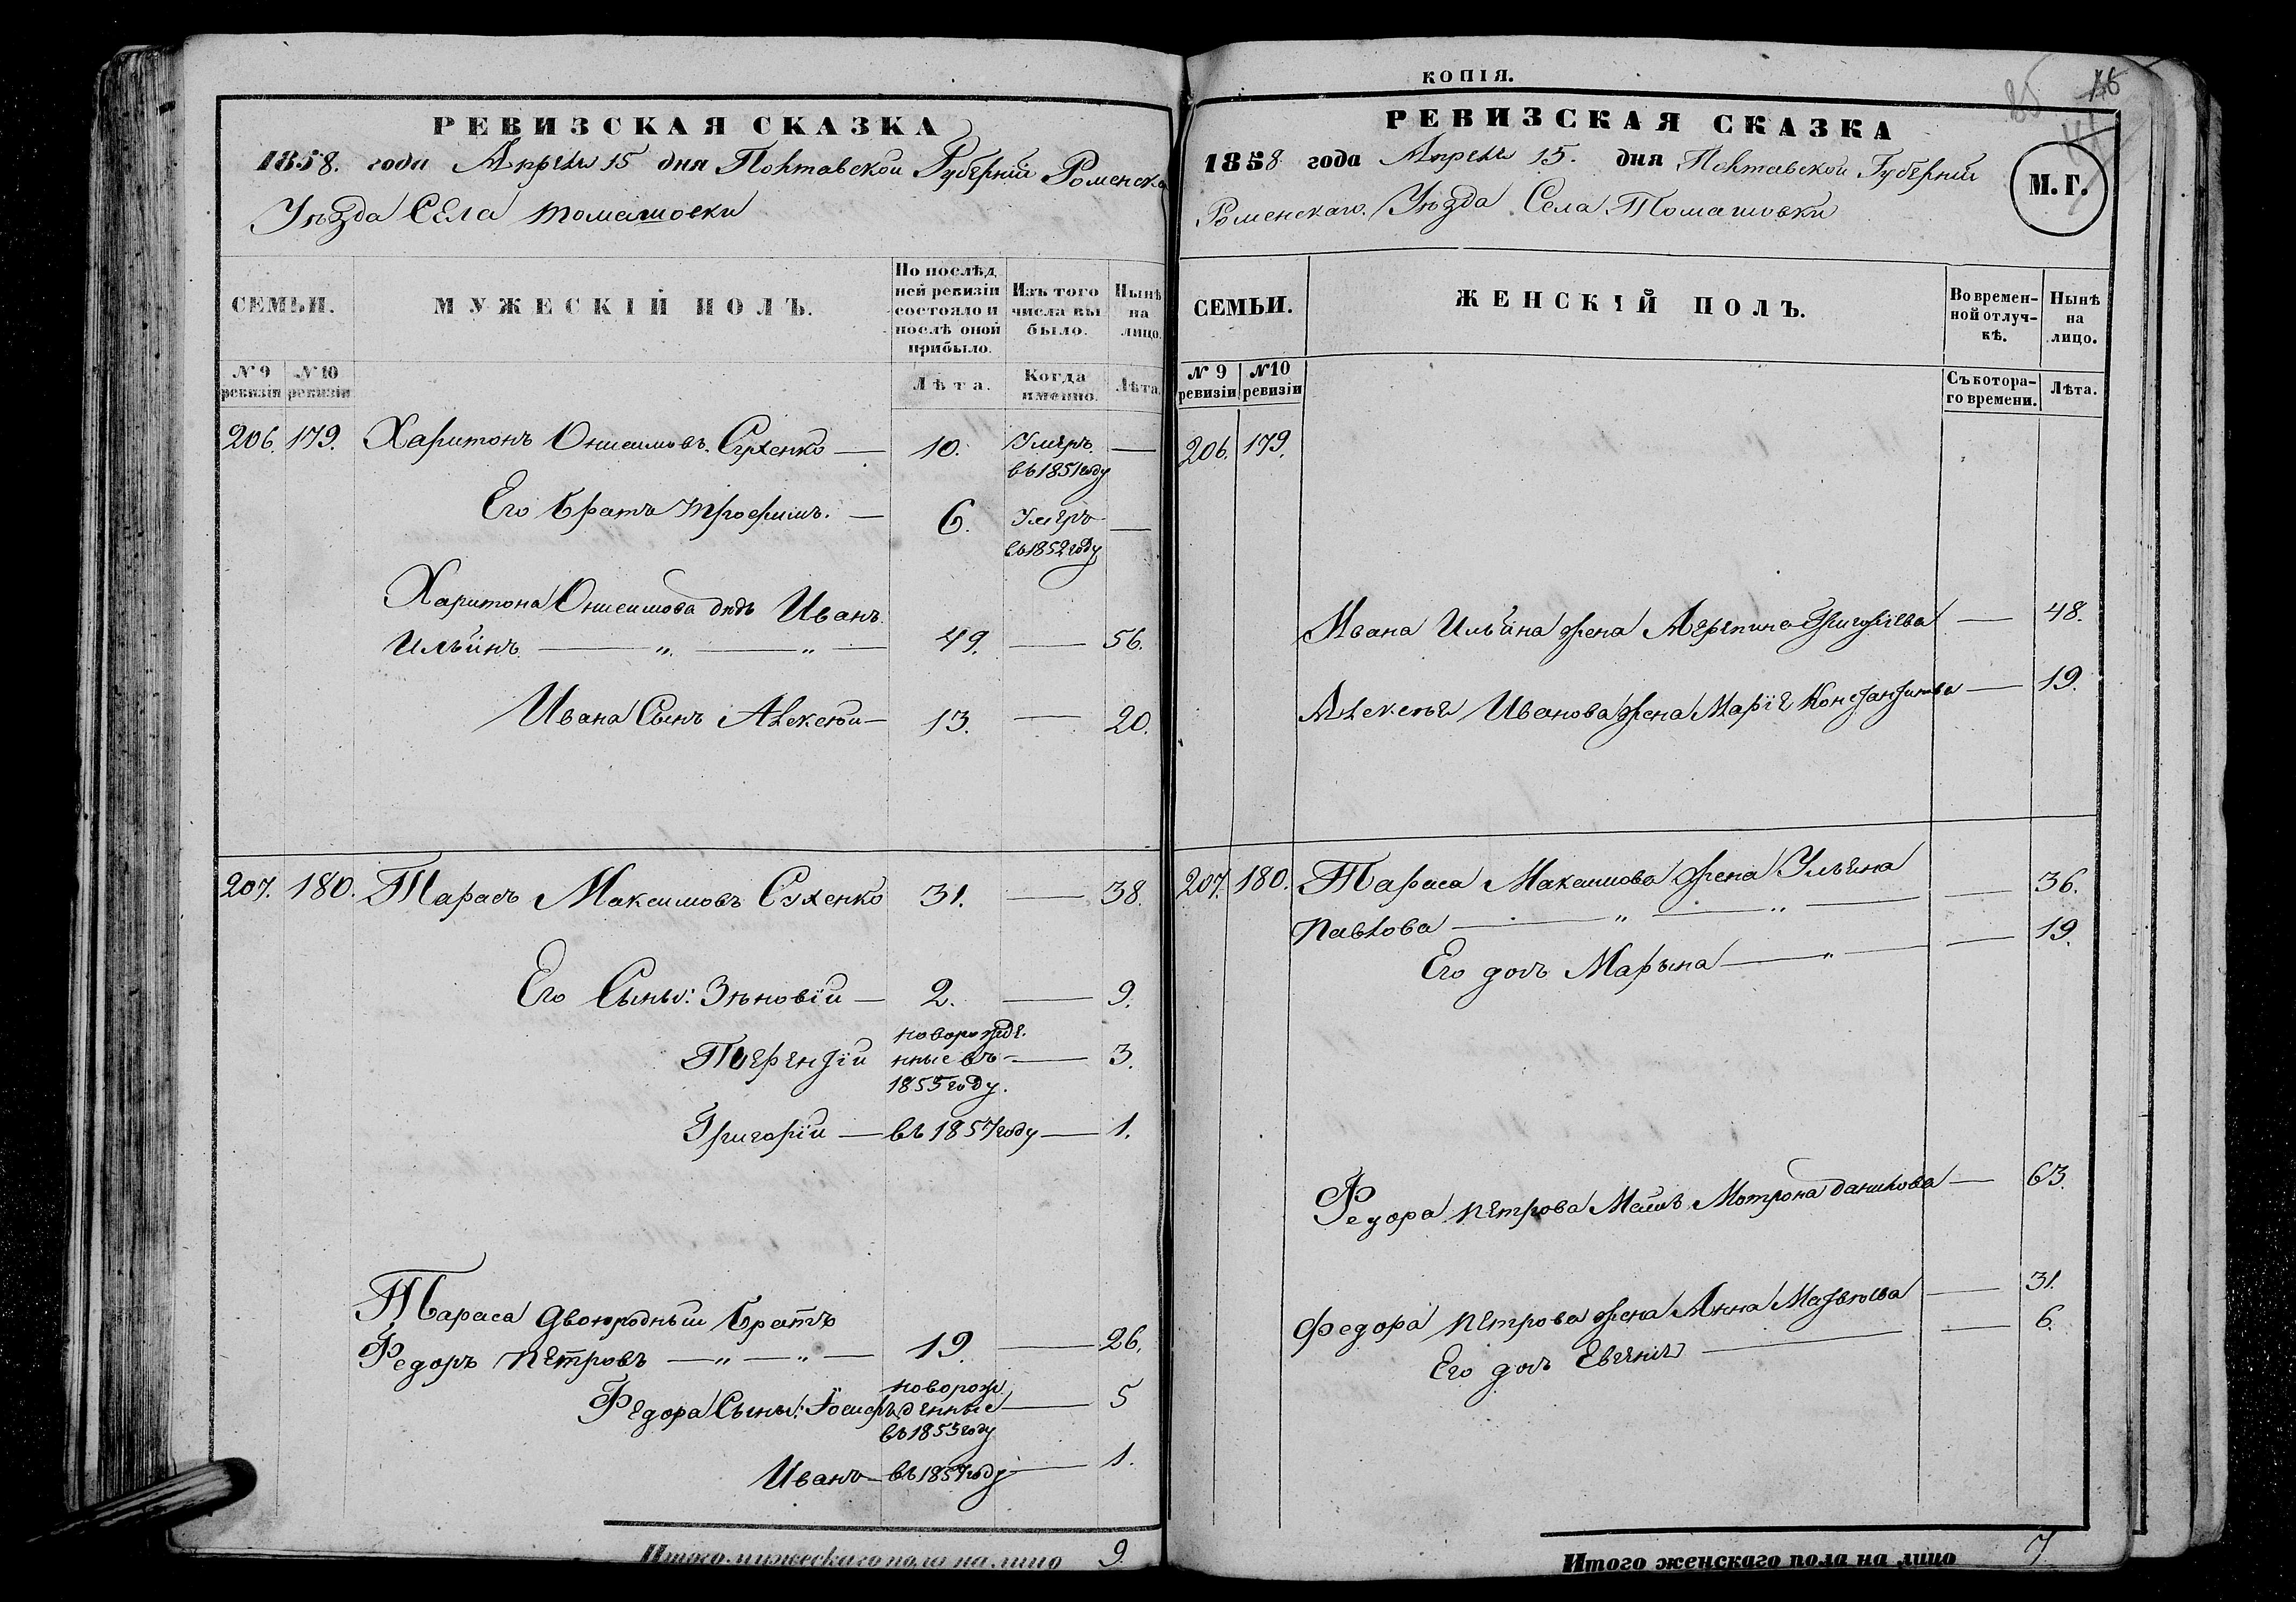 РЕВИЗСКАЯ СКАЗКА
1858. года Апреля 15 дня Полтавской Губерніи Роменска
Уѣзда Села Томашовки
СЕМЬИ.
МУЖЕСКІЙ ПОЛЪ.
По послѣд
ней ревизіи
состояло и
послѣ оной
прибыло.
Изъ того
числа вы
было.
Нынѣ
на
лицо.
№ 9
ревизіи
№ 10
ревизіи
Лѣта.
Когда
именно.
Лѣта.
206. 179. Харитонъ Онисимовъ Сухенко — 10. Умеръ —
въ 1851 году
Его братъ Трофимъ. — 6. Умеръ —
въ 1852 году
Харитона Онисимова дядъ Иванъ
Ильинъ — „ — „ — 49. — 56.
Ивана Сынъ Алексѣй — 13. — 20.
207. 180. Тарасъ Максимовъ Сухенко 31. — 38.
Его Сыны: Зѣновій — 2. — 9.
новорожде
Терентій нные въ — 3.
1855 году.
Григорій — въ 1857 году — 1.
Тараса двоюродный братъ
Федоръ Петровъ — „ — „ — 19. — 26.
новорож
Федора Сыны: Іосифъ денные — 5
въ 1853 году
Иванъ — въ 1857 году — 1.
Итого мужескаго пола на лицо 9.
КОПІЯ.
85 46
РЕВИЗСКАЯ СКАЗКА
1858. года Апреля 15. дня Полтавской Губерніи
Роменскаго Уѣзда Села Томашовки
М. Г.
СЕМЬИ.
ЖЕНСКІЙ ПОЛЪ.
Во времен-
ной отлуч-
кѣ.
Нынѣ
на
лицо.
№ 9
ревизіи
№10
ревизіи
Съ котора-
го времени.
Лѣта.
206. 179.
Ивана Ильина жена Агрипина Григоріева — 48.
Алексѣя Иванова жена Марія Константинова — 19.
207. 180. Тараса Максимова жена Ульяна
Павлова — „ — „ — — 36.
Его дочь Марына — „ — — 19.
Федора Петрова Мать Мотрона Данилова — 63.
Федора Петрова жена Анна Матвіева — 31.
Его дочь Евгенія — — 6.
Итого женскаго пола на лицо 7